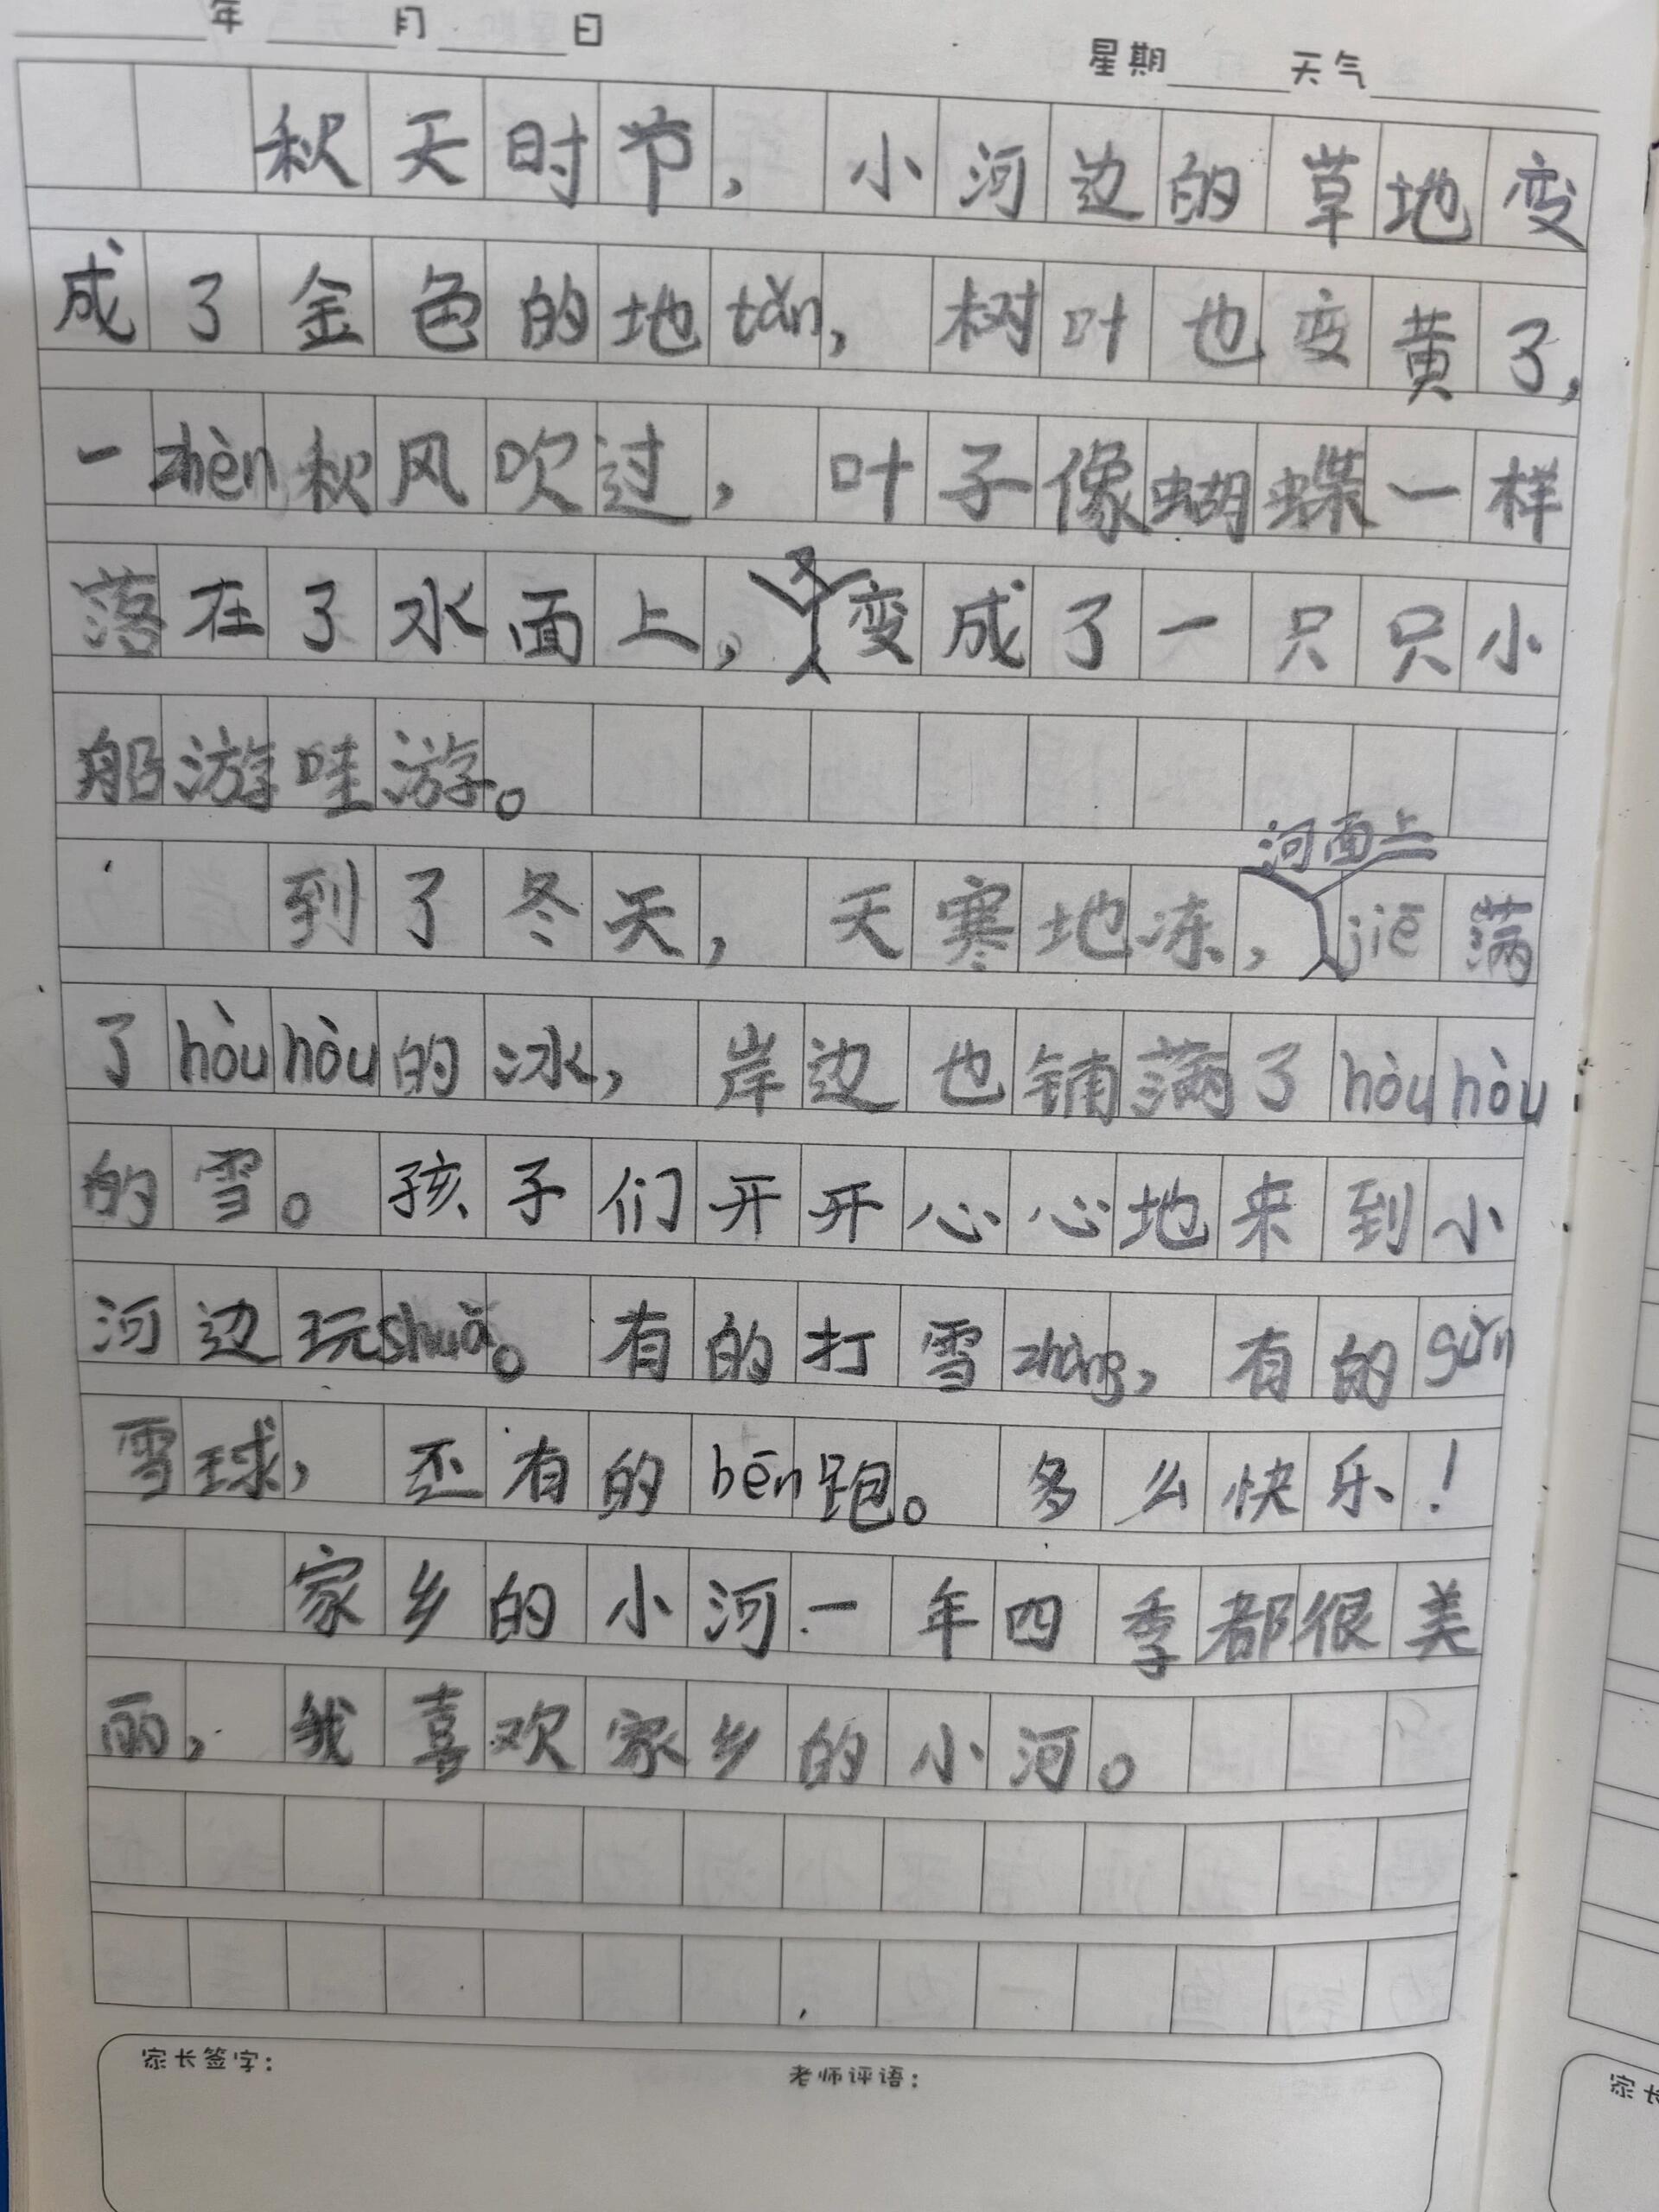 年 月 日 星期 天气
秋天时节，小河边的草地变
成了金色的地tǎn，树叶也变黄了，
一zhèn秋风吹过，叶子像蝴蝶一样
落在了水面上，又变成了一只只小
船游哇游。
河面上
到了冬天，天寒地冻，jiē满
了hòuhòu的冰，岸边也铺满了hòuhòu
的雪。孩子们开开心心地来到小
河边玩shuǎ。有的打雪zhàng，有的gǔn
雪球，还有的bēn跑。多么快乐！
家乡的小河一年四季都很美
丽，我喜欢家乡的小河。
家长签字： 老师评语：
家长